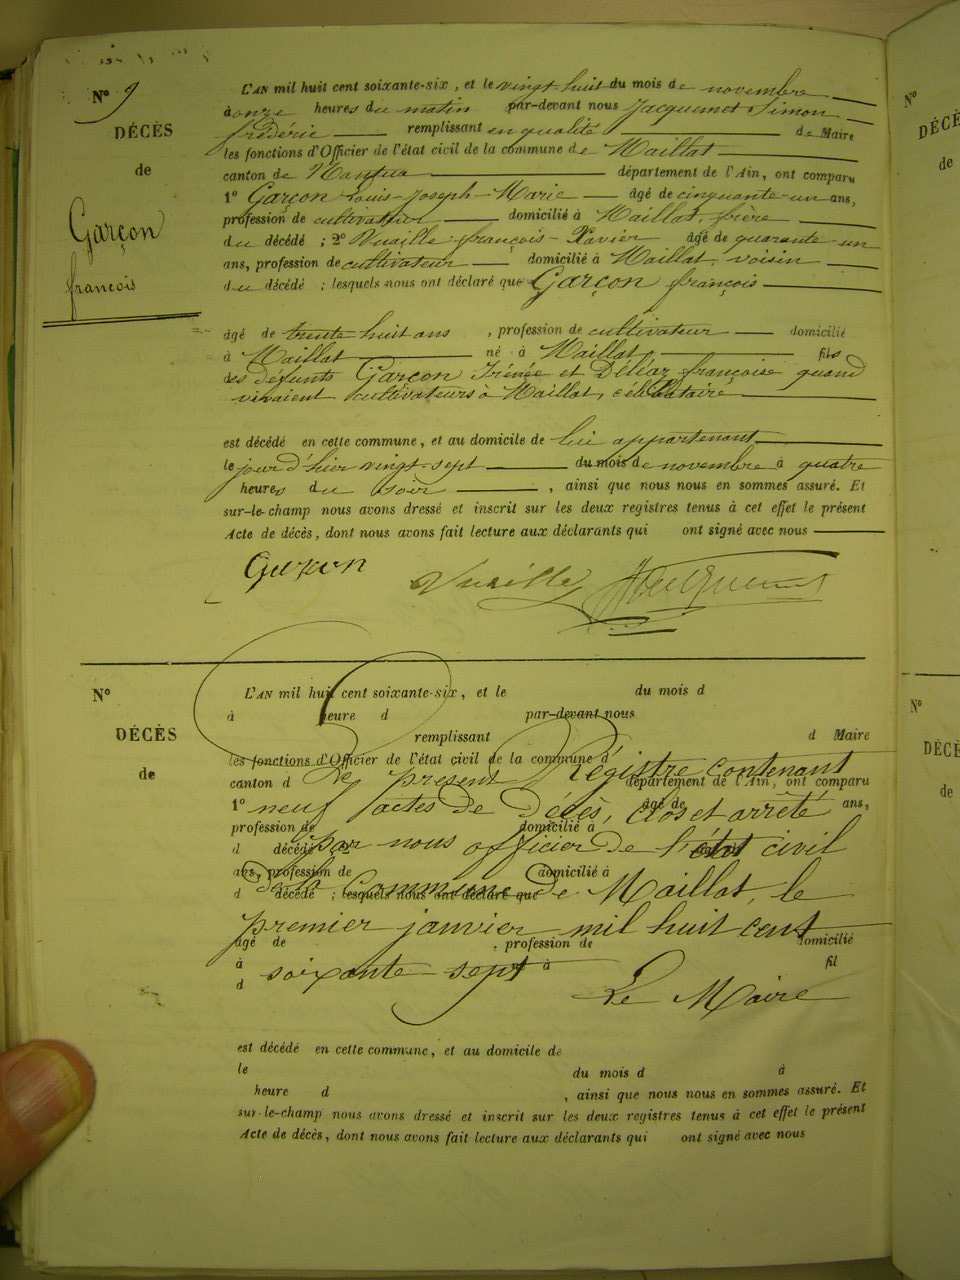 N° 9
DÉCÈS
de
Garçon
françois
L'AN mil huit cent soixante-six, et le vingt huit du mois de novembre
à onze heures du matin par-devant nous Jacquemet Simon
frédéric remplissant en qualité de Maire
les fonctions d'Officier de l'état civil de la commune de Maillat
canton de Nantua département de l'Ain, ont comparu
1° Garçon Louis-Joseph-Marie âgé de cinquante-un ans,
profession de cultivateur domicilié à Maillat, frère
du décédé ; 2° Vuaille françois-Xavier âgé de quarante-un
ans, profession de cultivateur domicilié à Maillat, voisin
du décédé ; lesquels nous ont déclaré que Garçon françois
âgé de trente huit ans , profession de cultivateur domicilié
à Maillat né à Maillat, fils
des défunts Garçon Irénée et Déliaz françoise quand
vivaient cultivateurs à Maillat, célibataire
est décédé en cette commune, et au domicile de lui appartenant
le jour d'hier vingt-sept du mois de novembre à quatre
heures du soir , ainsi que nous nous en sommes assuré. Et
sur-le-champ nous avons dressé et inscrit sur les deux registres tenus à cet effet le présent
Acte de décès, dont nous avons fait lecture aux déclarants qui ont signé avec nous
Garçon Vuaille Jacquemet
N°
DÉCÈS
de
L'AN mil huit cent soixante-six, et le du mois d
à heure d par-devant nous
remplissant d Maire
les fonctions d'Officier de l'état civil de la commune d
Le présent Registre contenant
canton d département de l'Ain, ont comparu
neuf actes de Décès, clos et arrêté
1° âgé de ans,
profession de domicilié à
par nous officier de l'état civil
d décédé ; 2° âgé de
ans, profession de domicilié à
de la Commune de Maillat, le
d décédé ; lesquels nous ont déclaré que
premier janvier mil huit cent
âgé de , profession de domicilié
soixante-sept
à né à fil
d
Le Maire
est décédé en cette commune, et au domicile de
le du mois d à
heure d , ainsi que nous nous en sommes assuré. Et
sur-le-champ nous avons dressé et inscrit sur les deux registres tenus à cet effet le présent
Acte de décès, dont nous avons fait lecture aux déclarants qui ont signé avec nous
N°
DÉCÈ
de
N°
DÉCÈ
de